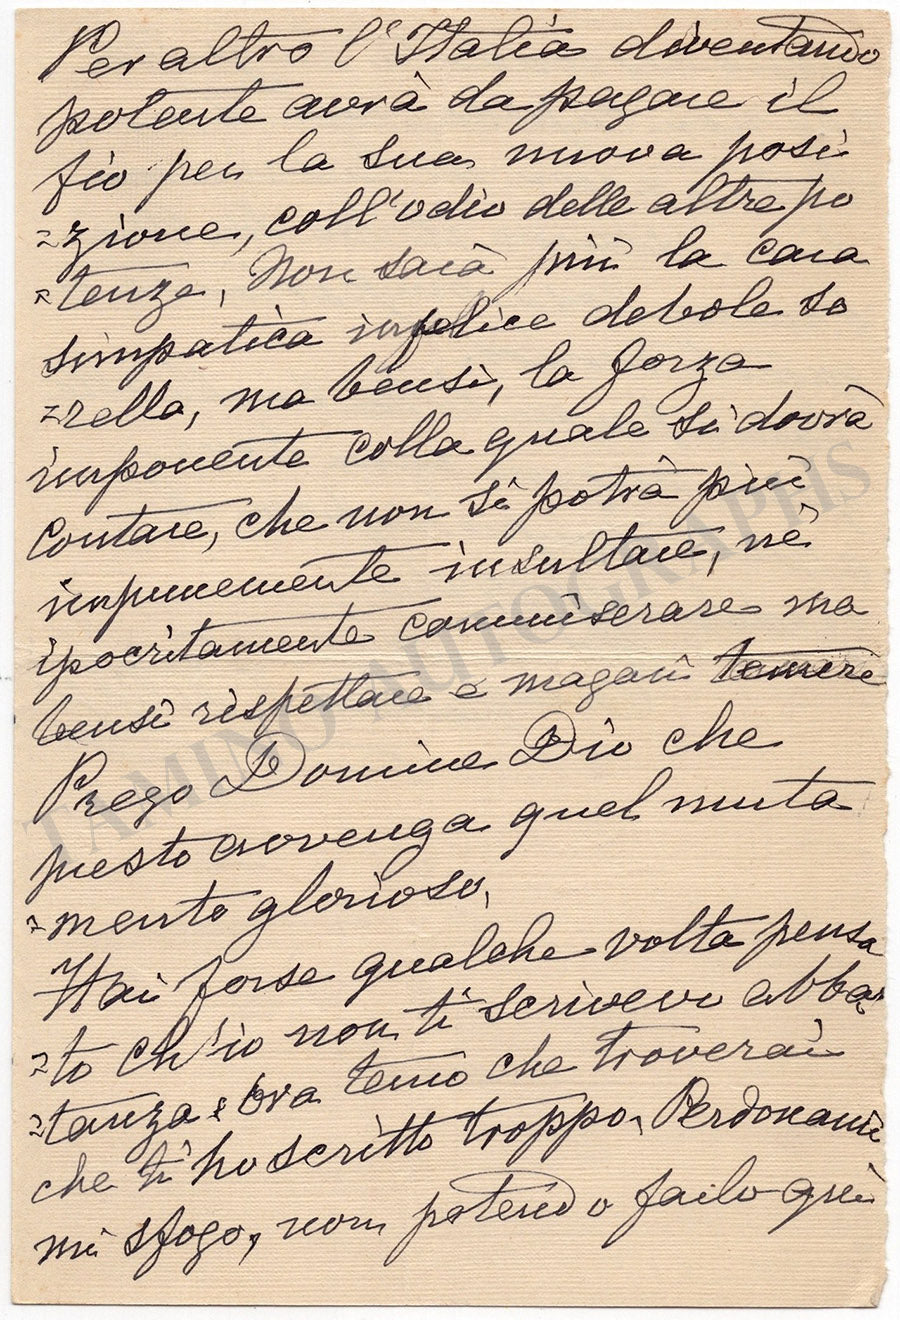 Per altro l'Italia diventando
potente avrà da pagare il
fio per la sua nuova posi
=zione, coll'odio delle altre po
=tenze, Non sarà più la cara
simpatica infelice debole so
=rella, ma bensì, la forza
imponente colla quale si dovrà
contare, che non si potrà più
impunemente insultare, nè
ipocritamente commiserare ma
bensì rispettare e magari temere
Prego Domine Dio che
presto avvenga quel muta
=mento glorioso.
Hai forse qualche volta pensa
=to ch'io non ti scrivevo abba
=tanza e ora temo che troverai
che ti ho scritto troppo. Perdonami
mi sfogo, non potendo farlo qui
TAMINO AUTOGRAPHS